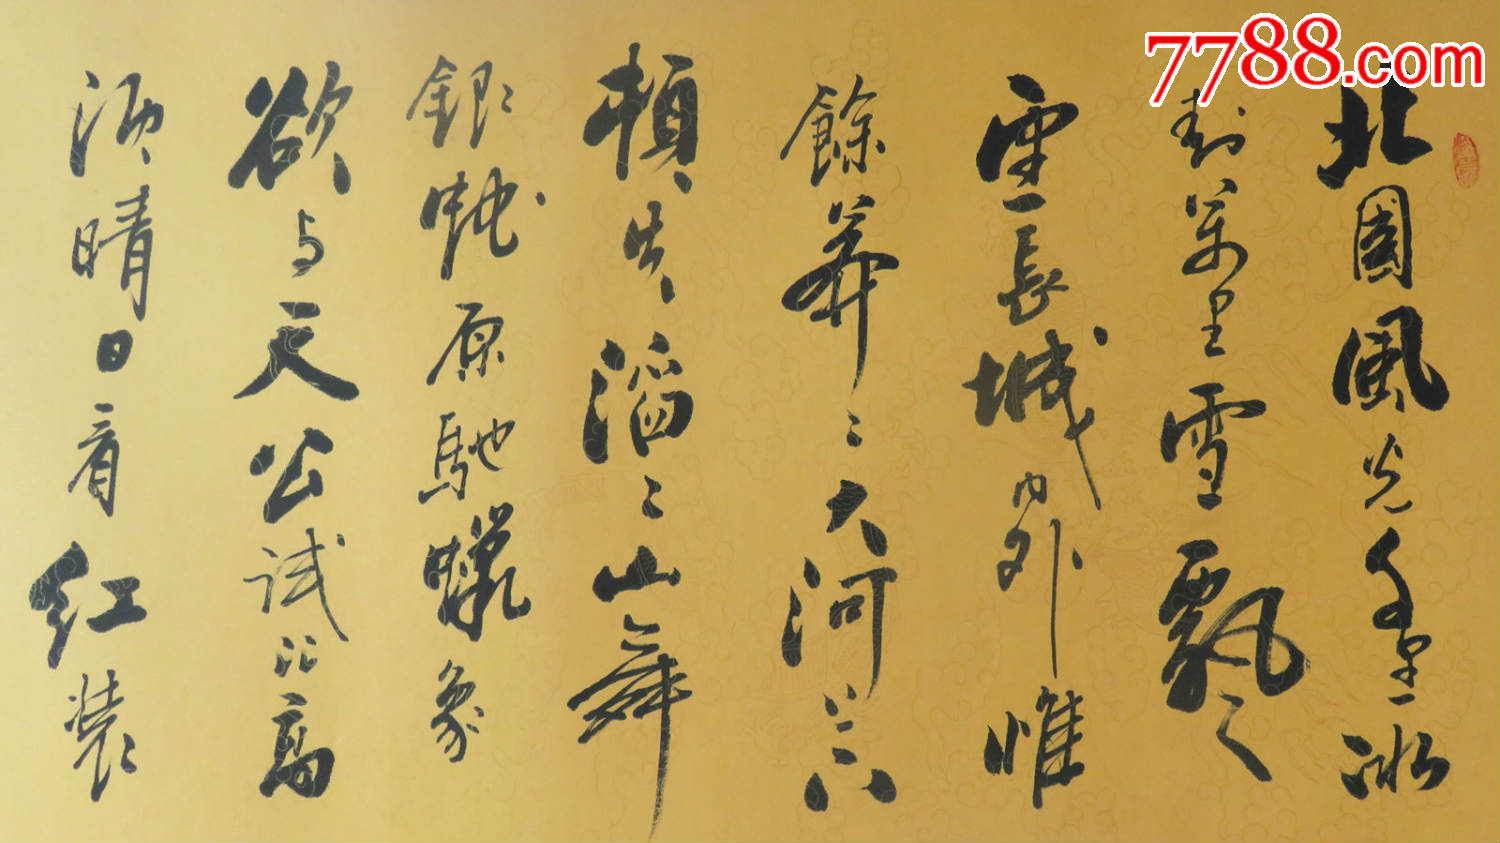 7788.com
北國風光千里冰
封萬里雪飄
望長城内外惟
餘莽〻大河上下
頓失滔〻山舞
銀蛇原馳蠟象
欲与天公試比高
須晴日看紅裝